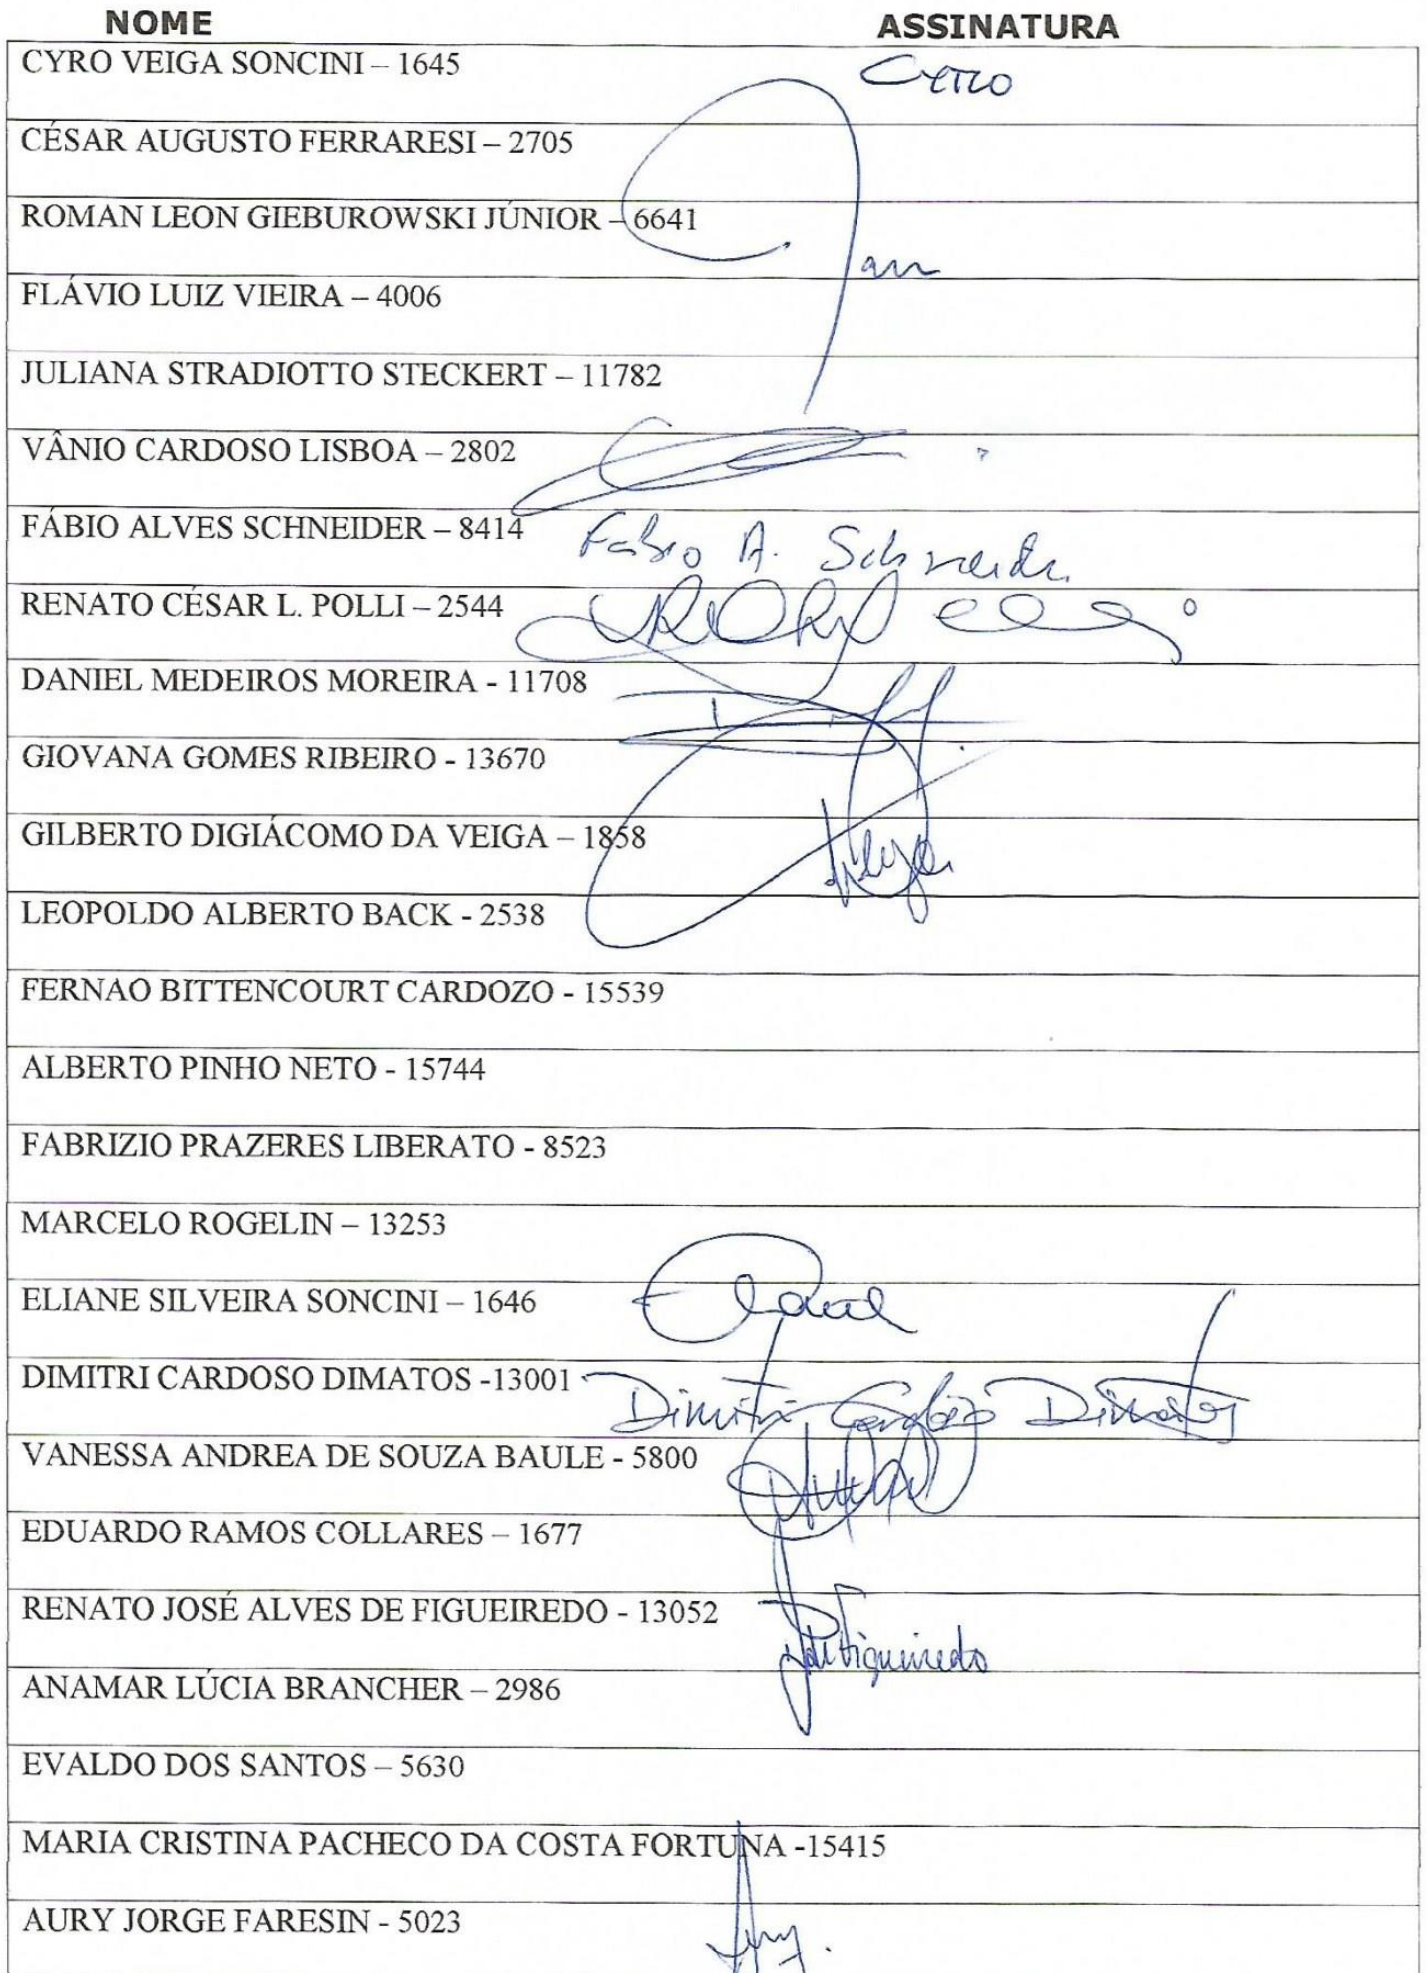 NOME ASSINATURA
CYRO VEIGA SONCINI – 1645 Cyro
CÉSAR AUGUSTO FERRARESI – 2705
ROMAN LEON GIEBUROWSKI JÚNIOR – 6641
FLÁVIO LUIZ VIEIRA – 4006
JULIANA STRADIOTTO STECKERT – 11782
VÂNIO CARDOSO LISBOA – 2802
FÁBIO ALVES SCHNEIDER – 8414 Fabio A. Schneider
RENATO CÉSAR L. POLLI – 2544
DANIEL MEDEIROS MOREIRA - 11708
GIOVANA GOMES RIBEIRO - 13670
GILBERTO DIGIÁCOMO DA VEIGA – 1858
LEOPOLDO ALBERTO BACK - 2538
FERNAO BITTENCOURT CARDOZO - 15539
ALBERTO PINHO NETO - 15744
FABRIZIO PRAZERES LIBERATO - 8523
MARCELO ROGELIN – 13253
ELIANE SILVEIRA SONCINI – 1646
DIMITRI CARDOSO DIMATOS -13001 Dimitri Cardoso Dimatos
VANESSA ANDREA DE SOUZA BAULE - 5800
EDUARDO RAMOS COLLARES – 1677
RENATO JOSÉ ALVES DE FIGUEIREDO - 13052
ANAMAR LÚCIA BRANCHER – 2986
EVALDO DOS SANTOS – 5630
MARIA CRISTINA PACHECO DA COSTA FORTUNA -15415
AURY JORGE FARESIN - 5023